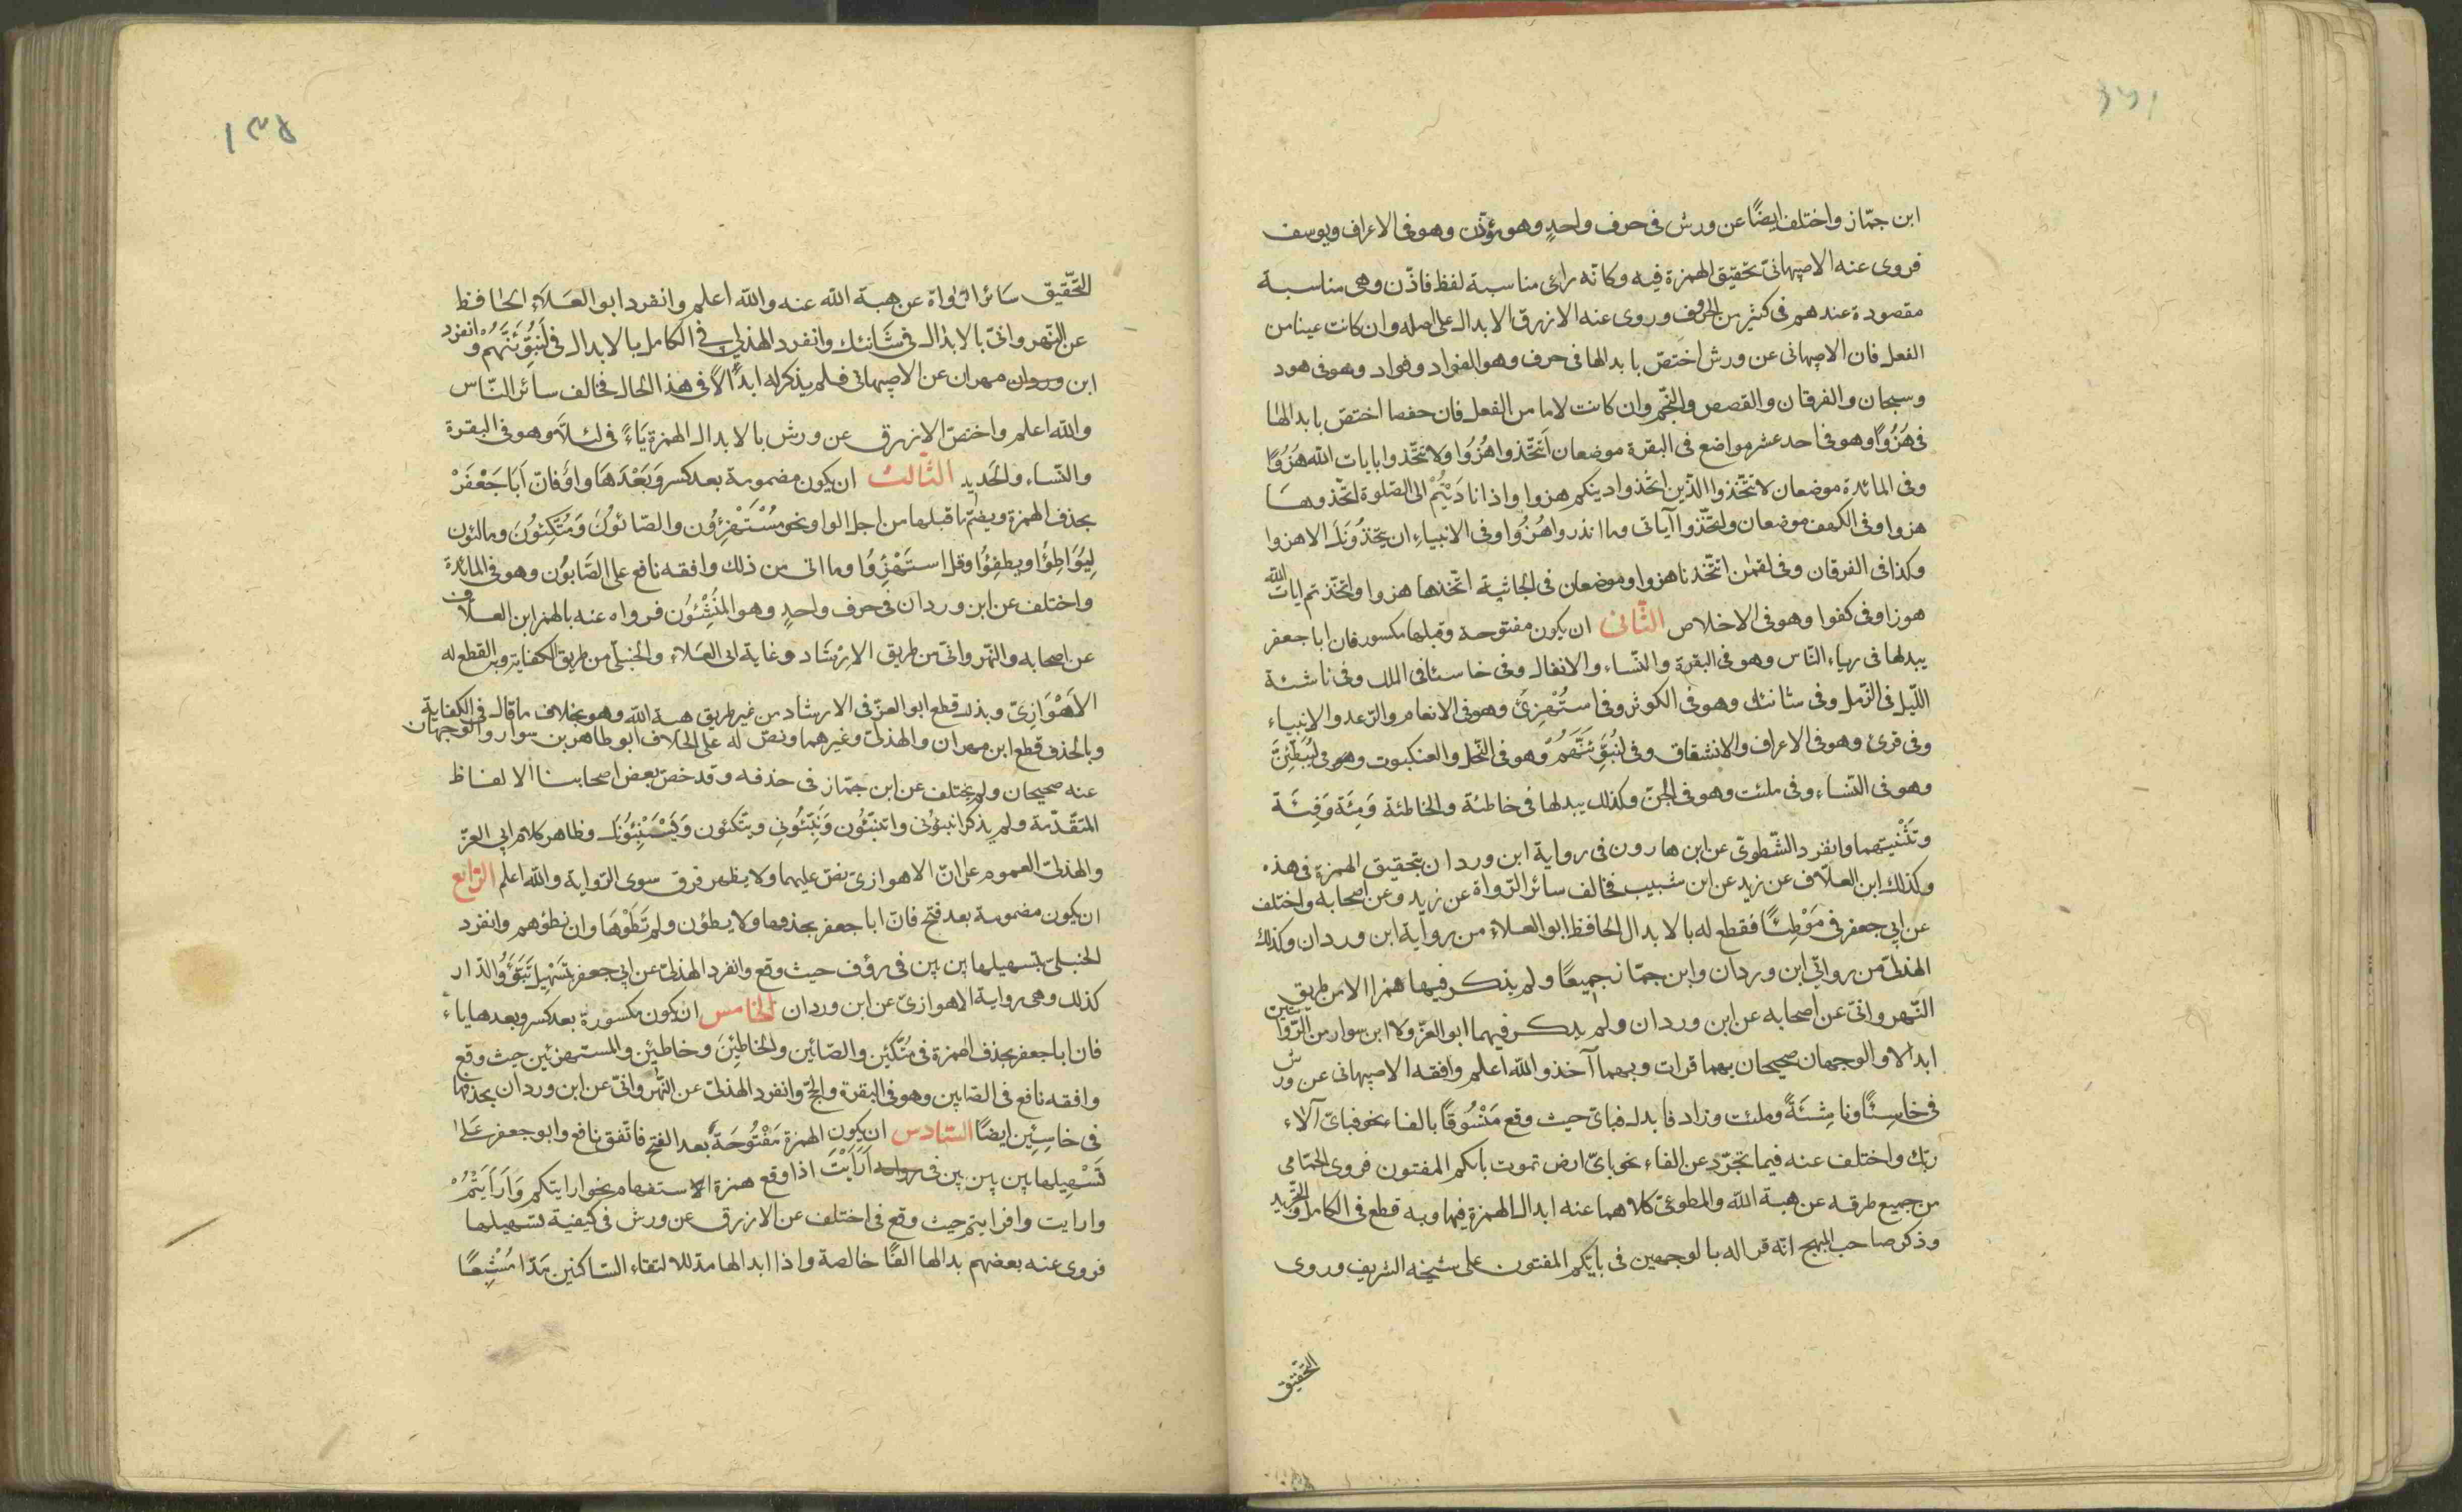 ابن جمّاز واختلف ايضًا عن ورش فى حرف واحدٍ وهو مؤذّن وهو فى الاعراف ويوسف
فروى عنه الاصبهانىّ تحقيق الهمزة فيه وكانّه راعى مناسبة لفظ فاذّن وهى مناسبة
مقصودة عندهم فى كثير من الحروف وروى عنه الازرق الابدال على اصله وان كانت عينا من
الفعل فان الاصبهانى عن ورش اختصّ بابدالها فى حرف وهو الفواد وفواد وهو فى هود
وسبحان والفرقان والقصص والنّجم وان كانت لاما من الفعل فان حفصا اختصّ بابدالها
فى هُزُوًا وهو فى احد عشر مواضع فى البقرة موضعان اَتتّخذوا هُزُوَا ولا تتّخذوا بايات الله هُزُوًا
وفى المائدة موضعان لا تتّخذوا الذّين اتّخذوا دينكم هزوا واذا نادَيْتُمْ الى الصّلوة اتّخذوها
هزوا وفى الكهف موضعان واتّخذوا آياتى وما انذروا هُزُوا وفى الانبياء ان يتّخذُونَكَ الا هزوا
وكذا فى الفرقان وفى لقمٰن اتتّخذناهزوا وموضعان فى الجاثية اتّخذها هزوا واتخّذتم ايات الله
هوزا وفى كفوا وهو فى الاخلاص الثّانى ان يكون مفتوحة وقبلها مكسور فان ابا جعفر
يبدلها فى رياء النّاس وهو فى البقرة والنّساء والانفال وفى خاسئا فى الملك وفى ناشئة
اللّيل فى المزّمل وفى شانئك وهو فى الكوثر وفى استُهْزِئَ وهو فى الانعام والرّعد والانبياء
وفى قرئ وهو فى الاعراف والانشقاق وفى لنُبَوِّئَنَّهُمْ وهو فى النّحل والعنكبوت وهو فى ليُبَطِّئنَّ
وهو فى النّساء وفى ملئت وهو فى الجنّ وكذلك يبدلها فى خاطئة والخاطئة وَمِئَة وَفِئَة
وتَثْنيتهما وانفرد الشّطوىّ عن ابن هارون فى رواية ابن وردان بتحقيق الهمزة فى هذه
وكذلك ابن العلّاف عن زيد عن ابن شبيب فخالف سائر الرّواة عن زيد وعن اصحابه واختلف
عن ابى جعفر فى مَوْطِئًا فقطع له بالابدال الحافظ ابو العلاء من رواية ابن وردان وكذلك
الهذلىّ من روايتى ابن وردان وابن جمّاز جميعًا ولم يذكر فيها همزا الا من طريق
النّهروانىّ عن اصحابه عن ابن وردان ولم يذكر فيهما ابو العزّ ولا ابن سوار من الرّوايتين
ابدالا والوجهان صحيحان بهما قرات وبهما آخذ والله اعلم وافقه الاصبهانى عن ورش
فى خاسِئًا وناشِئَةً وملئت وزاد فابدل فباىّ حيث وقع مَنْسُوقًا بالفاء نحو فباىّ آلاء
ربّك واختلف عنه فيما تجرّد عن الفاء نحو باىّ ارض تموت بايّكم المفتون فروى الحمّامى
من جميع طرقه عن هبة الله والمطوعىّ كلاهما عنه ابدال الهمزة فيها وبه قطع فى الكامل والتجريد
وذكر صاحب المبهج انّه قرا له بالوجهين فى بايّكم المفتون على شيخه الشريف وروى
التحقيق
١٣٥
التّحقيق سَائر الرّواة عن هبة الله عنه والله اعلم وانفرد ابو العَلَاءِ الحافظ
عن النّهروانىّ بالابدال فى شَانئك وانفرد الهذلى فى الكامل بالابدال فى لَنبُوِّئَنَّهُمْ وانفرد
ابن وردان مهران عن الاصبهانى فلم يذكر له ابدالًا فى هذا الحال فخالف سائر النّاس
والله اعلم واختصّ الازرق عن ورش بالابدال الهمزة يَاءً فى لئلّا وهو فى البقرة
والنّساء والحَديد الثّالث ان يكون مضمومة بعد كسر وَبَعْدَهَا واو فانّ اَبَا جَعْفَرْ
بحذف الهمزة ويضمّ ما قبلها من اجل الواو نحو مُسْتَهْزِؤُن والصّائبونَ وَمُتَّكِئونَ ومالئون
لِيُوَاطِؤُا ويطفِؤُا وقل استَهْزِؤُا وما اتى من ذلك وافقه نافع على الصَّابؤُن وهو فى المائدة
واختلف عن ابن وردان فى حرف واحدٍ وهو المُنْشِئوُن فرواه عنه بالهمز ابن العلّاف
عن اصحابه والنّهروانىّ من طريق الارْشاد وغاية ابى العَلاءِ والحنبلىّ من طريق الكفاية وبه القطع له
الاَهْوَازِىّ وبذلك قطع ابو العزّ فى الارشاد من غير طريق هبة الله وهو بخلاف ما قال فى الكفاية
وبالحذف قطع ابن مهران والهذلىّ وغيرهما ونصّ له على الخلاف ابو طاهر بن سوار والوجهان
عنه صحيحان ولم يختلف عن ابن جمّاز فى حذفه وقد خصّ بعض اصحابنا الالفاظ
المتقدّمة ولم يذكر انبؤُنى واتنبّئُون وَنَبّئُونِى ويتّكئون وَيَسْتَنْبِئُونَك وظاهر كلام ابى العزّ
والهذلىّ العموم على انّ الاهوازىّ نصّ عليهما ولا يظهر فرق سوى الرّواية والله اعلم الرّابع
ان يكون مضمومة بعد فتح فانّ ابا جعفر بحذفها ولا يطؤن ولم تَطَوْهَا وان تطؤهم وانفرد
الحنبلىّ بتسهيلها بين بين فى رؤف حيث وقع وانفرد الهذلىّ عن ابى جعفر بتَسْهِيل تَبَوَّؤُ الدّار
كذلك وهى رواية الاهوازىّ عن ابن وردان الخامس ان يكون مكسورة بعد كسر وبعدها ياء
فان ابا جعفر بحذف الهمزة فى مُتَّكئِن والصّائبين والخاطِئِنَ وخاطئِن والمستهزئين حيث وقع
وافقه نافع فى الصّابين وهو فى البقرة والحجّ وانفرد الهذلىّ عن النّهروانىّ عن ابن وردان بحذفها
فى خاسِئِين ايضًا السّادس ان يكون الهمزة مَفْتُوحَة بعد الفتح فاتّفق نافع وابو جعفر عَلىٰ
تَسْهِيلها بين بين فى اَرَاَيْتَ اذا وقع همزة الاستفهام نحو ارايتكم وَاَرَاَيْتُمْ
وارايت وافرايتم حيث وقع فى اختلف عن الازرق عن ورش فى كيفية تسهيلها
فروى عنه بعضهم بدالها الفًا خالصة واذا ابدالها مدّ للالتقاء السّاكنين مَدّا مُشْبِعًا